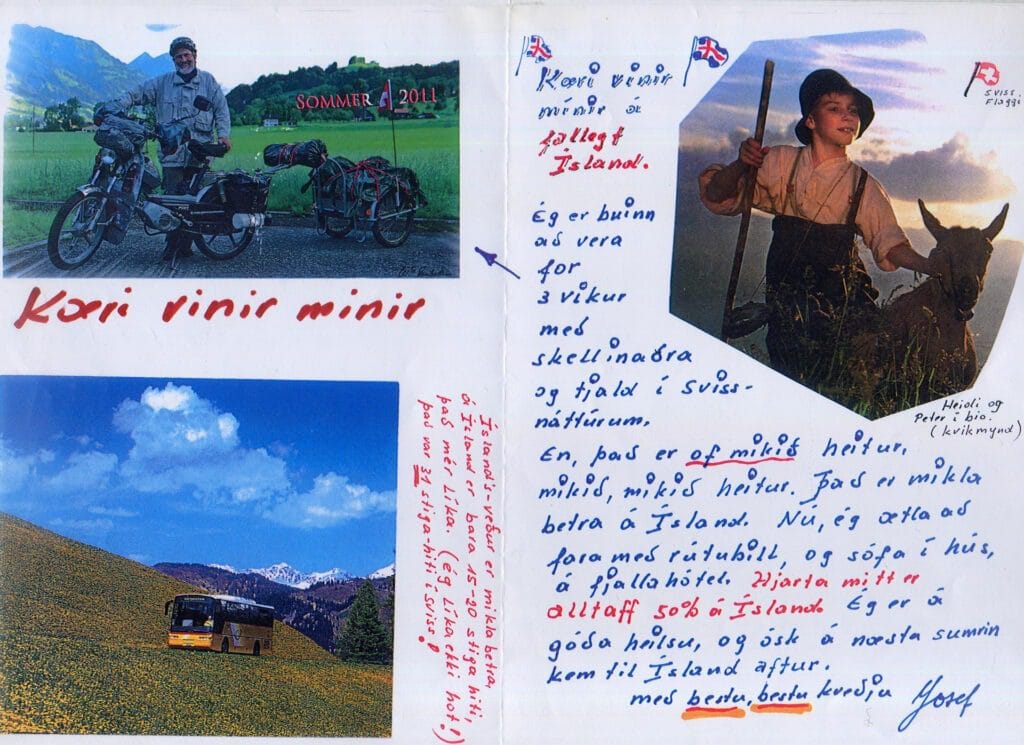 SOMMER 2011
Kæri vinir minir
Íslands-veður er mikla betra,
á Ísland er bara 15-20 stiga hiti,
það mér Líka. (ég Líka ekki hot!)
það var 31 stiga-hiti í Sviss!
Kæri vinir
mínir á
fallegt
Ísland.
Ég er buinn
að vera
for
3 vikur
með
skellinaðra
og tjald í Sviss-
náttúrum.
En, það er of mikið heitur,
mikið, mikið heitur. Það er mikla
betra á Ísland. Nú, ég ætla að
fara með rútubíll, og sófa í hús,
á fjallahótel. Hjarta mitt er
alltaff 50% á Ísland. Ég er á
góða heilsu, og ósk á næsta sumrin
kem til Ísland aftur.
með bestu, bestu kveðju Josef
sviss.
Flaggi
Heidi og
Peter í bio.
(kvikmynd)